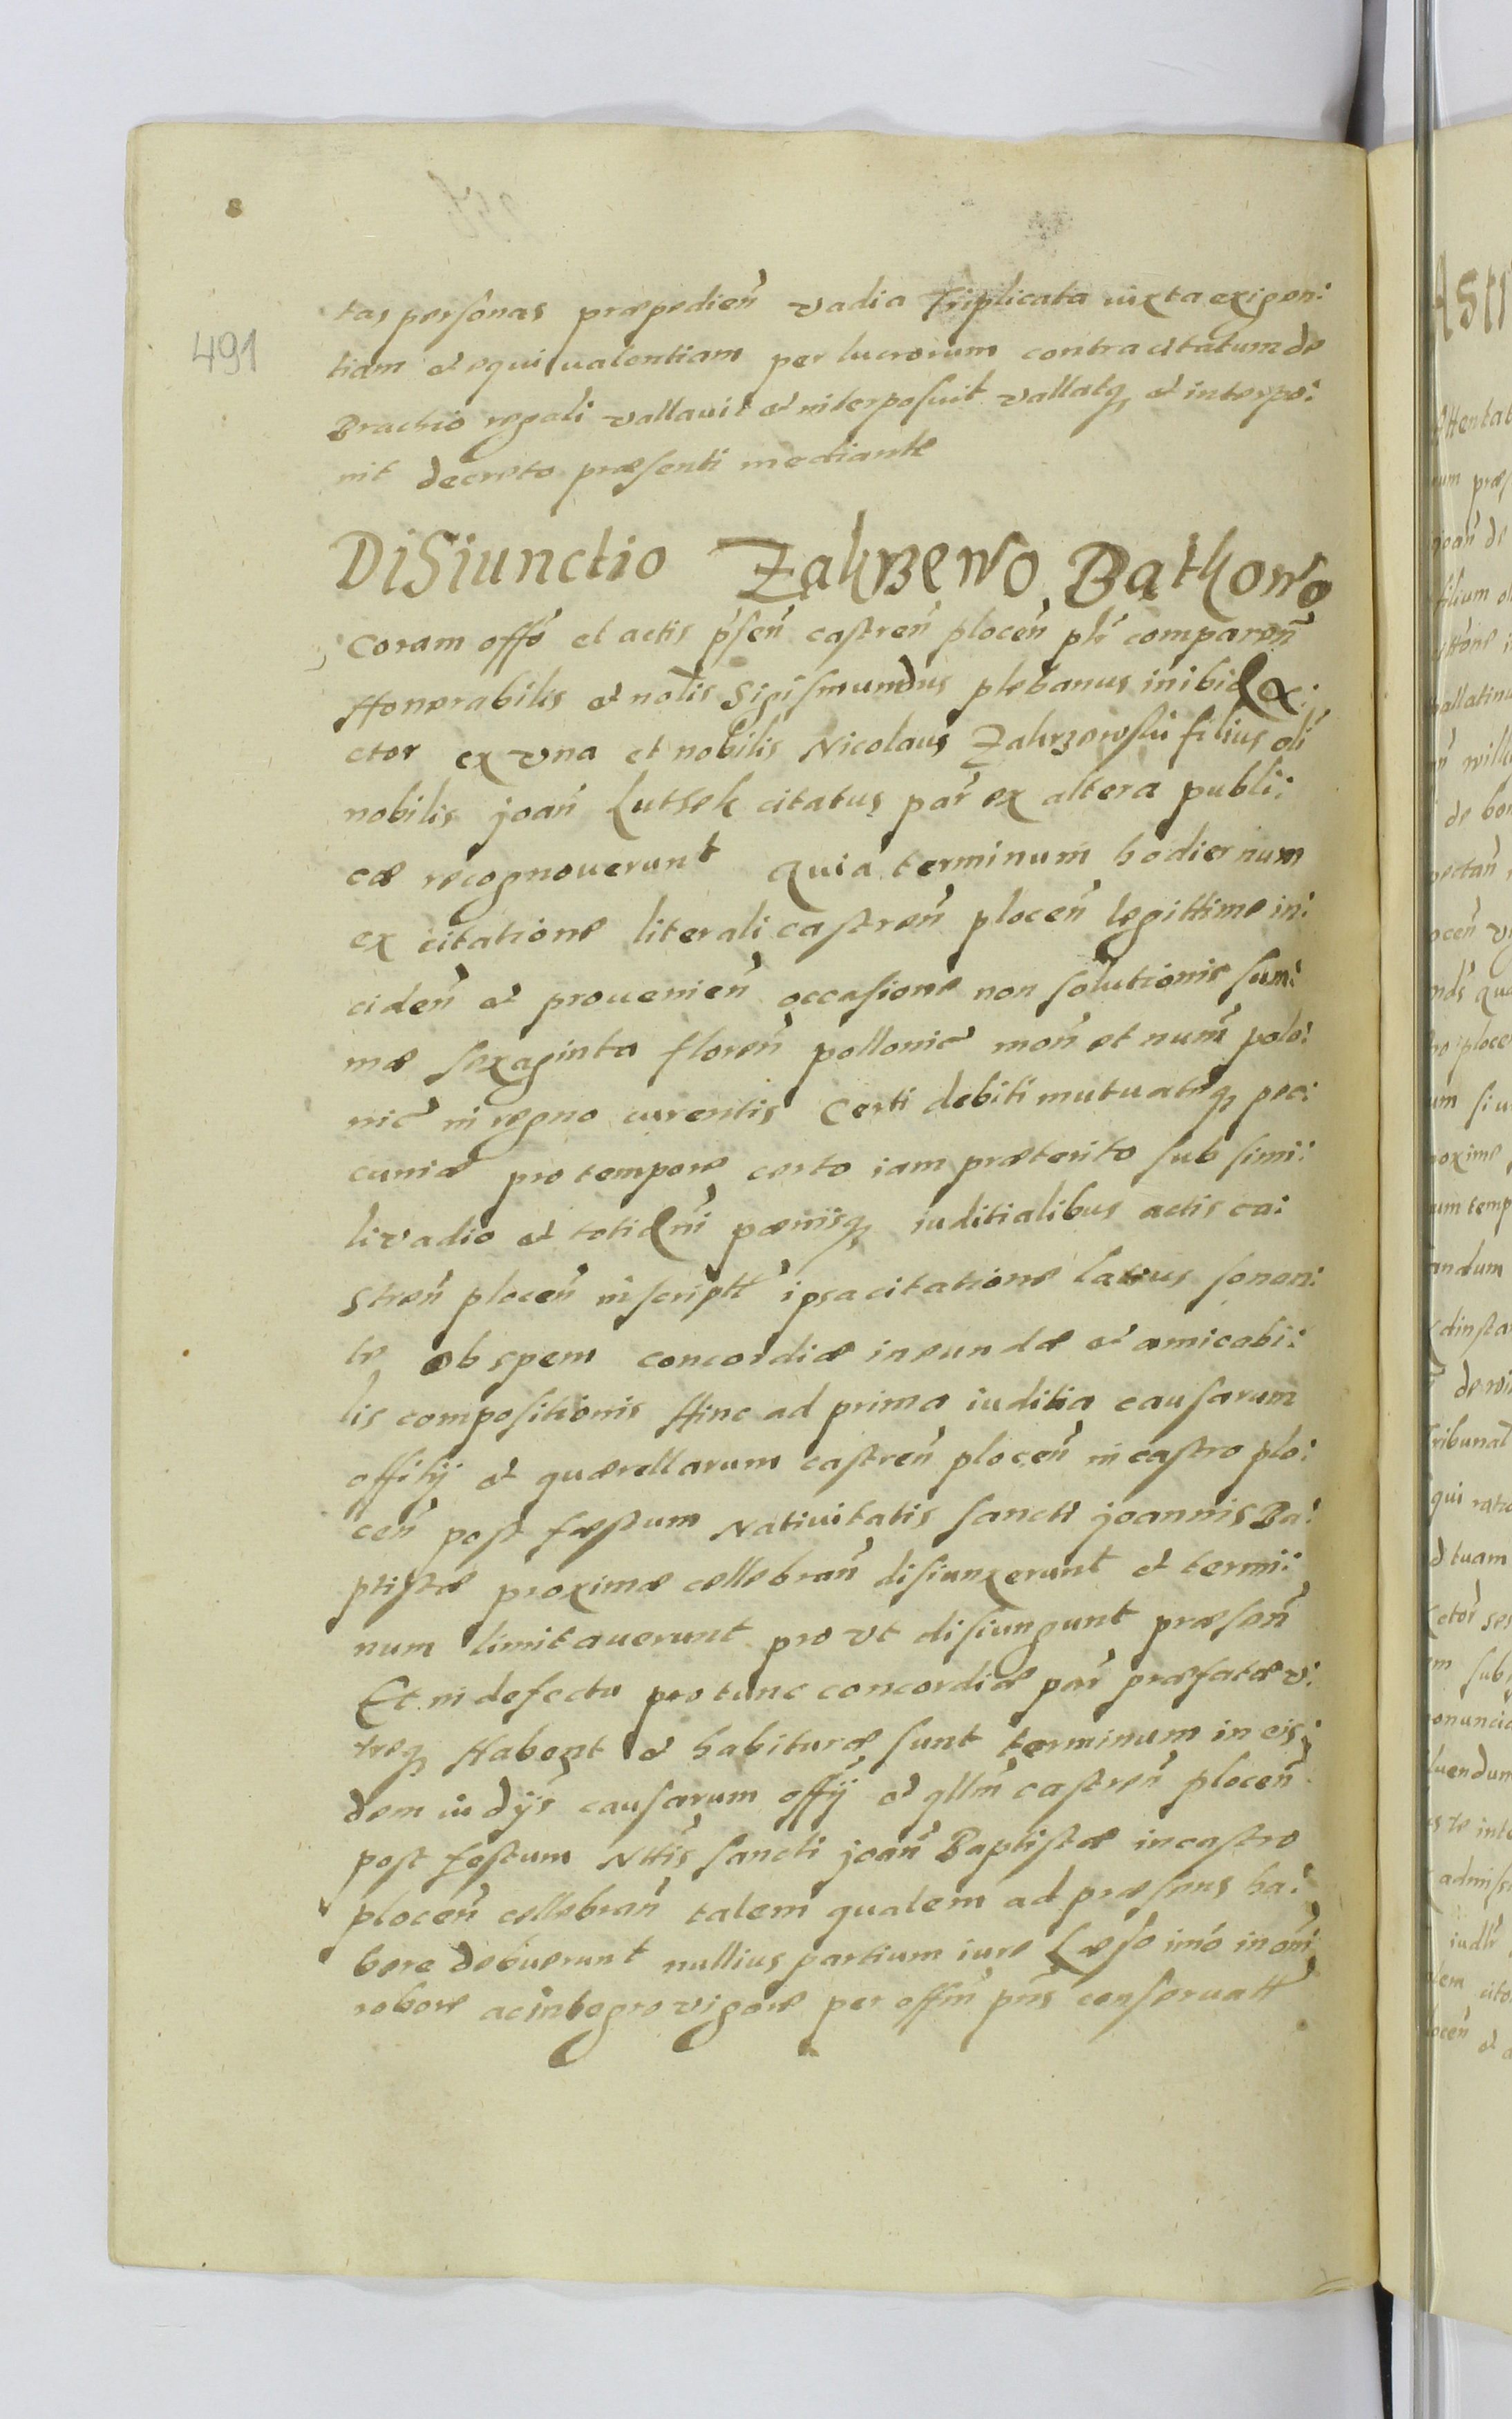 491
tas personas præpedien̄ vadia Triplicata iuxta exigen:
tiam et equi ualentiam per lucrorum contra citatum de
Brachio regali vallauit et interposuit vallatq et interpo:
nit decreto præsenti mediante
Disiunctio Zakrzewo Bathowo
Coram offō et actis p̄sen̄ castren̄ plocen̄ pl̄r comparen̄
Honorabilis et nob̄lis Sigismundus plebanus inibi &:
ctor ex vna et nobilis Nicolaus Zakrzewski filius oli
nobilis joan̄ Luthek citatus par̄ ex altera publi:
cæ recognouerunt Quia terminum hodiernum
ex citatione literali castren̄ plocen̄ legittime in:
ciden̄ et prouenien̄ occasione non solutionis sum:
mæ sexaginta floren̄ pollonic̄ mon̄ et num̄ polo:
nic̄ in regno curentis Certi debiti mutuatæq pec:
cuniæ pro tempore certo iam præterito sub simi:
li vadio et totidm̄ pœnisq iuditialibus actis ca:
stren̄ plocen̄ inscriptt̄ ipsa citatione latius sonan:
te ob spem concordiæ ineundæ et amicabi:
lis compositionis Hinc ad prima iuditia causarum
offitij et quærellarum castren̄ plocen̄ in castro plo:
cen̄ post fæstum Natiuitatis sancti joannis Ba:
ptistæ proximæ cellebran̄ disiunxerunt et termi:
num limitauerunt pro vt disiungunt præsen̄
Et in defectu pro tunc concordiæ par̄ præfatæ v:
træq Habent et habituræ sunt terminum in eis:
dem iudijs causarum offij et qllm̄ castren̄ plocen̄
post festum Nttis sancti joan̄ Baptistæ in castro
plocen̄ cellebran̄ talem qualem ad præsens ha:
bere debuerunt nullius partium iure Læso imo in om̄i
robore ac integro vigore per offm̄ pn̄s conseruatt̄